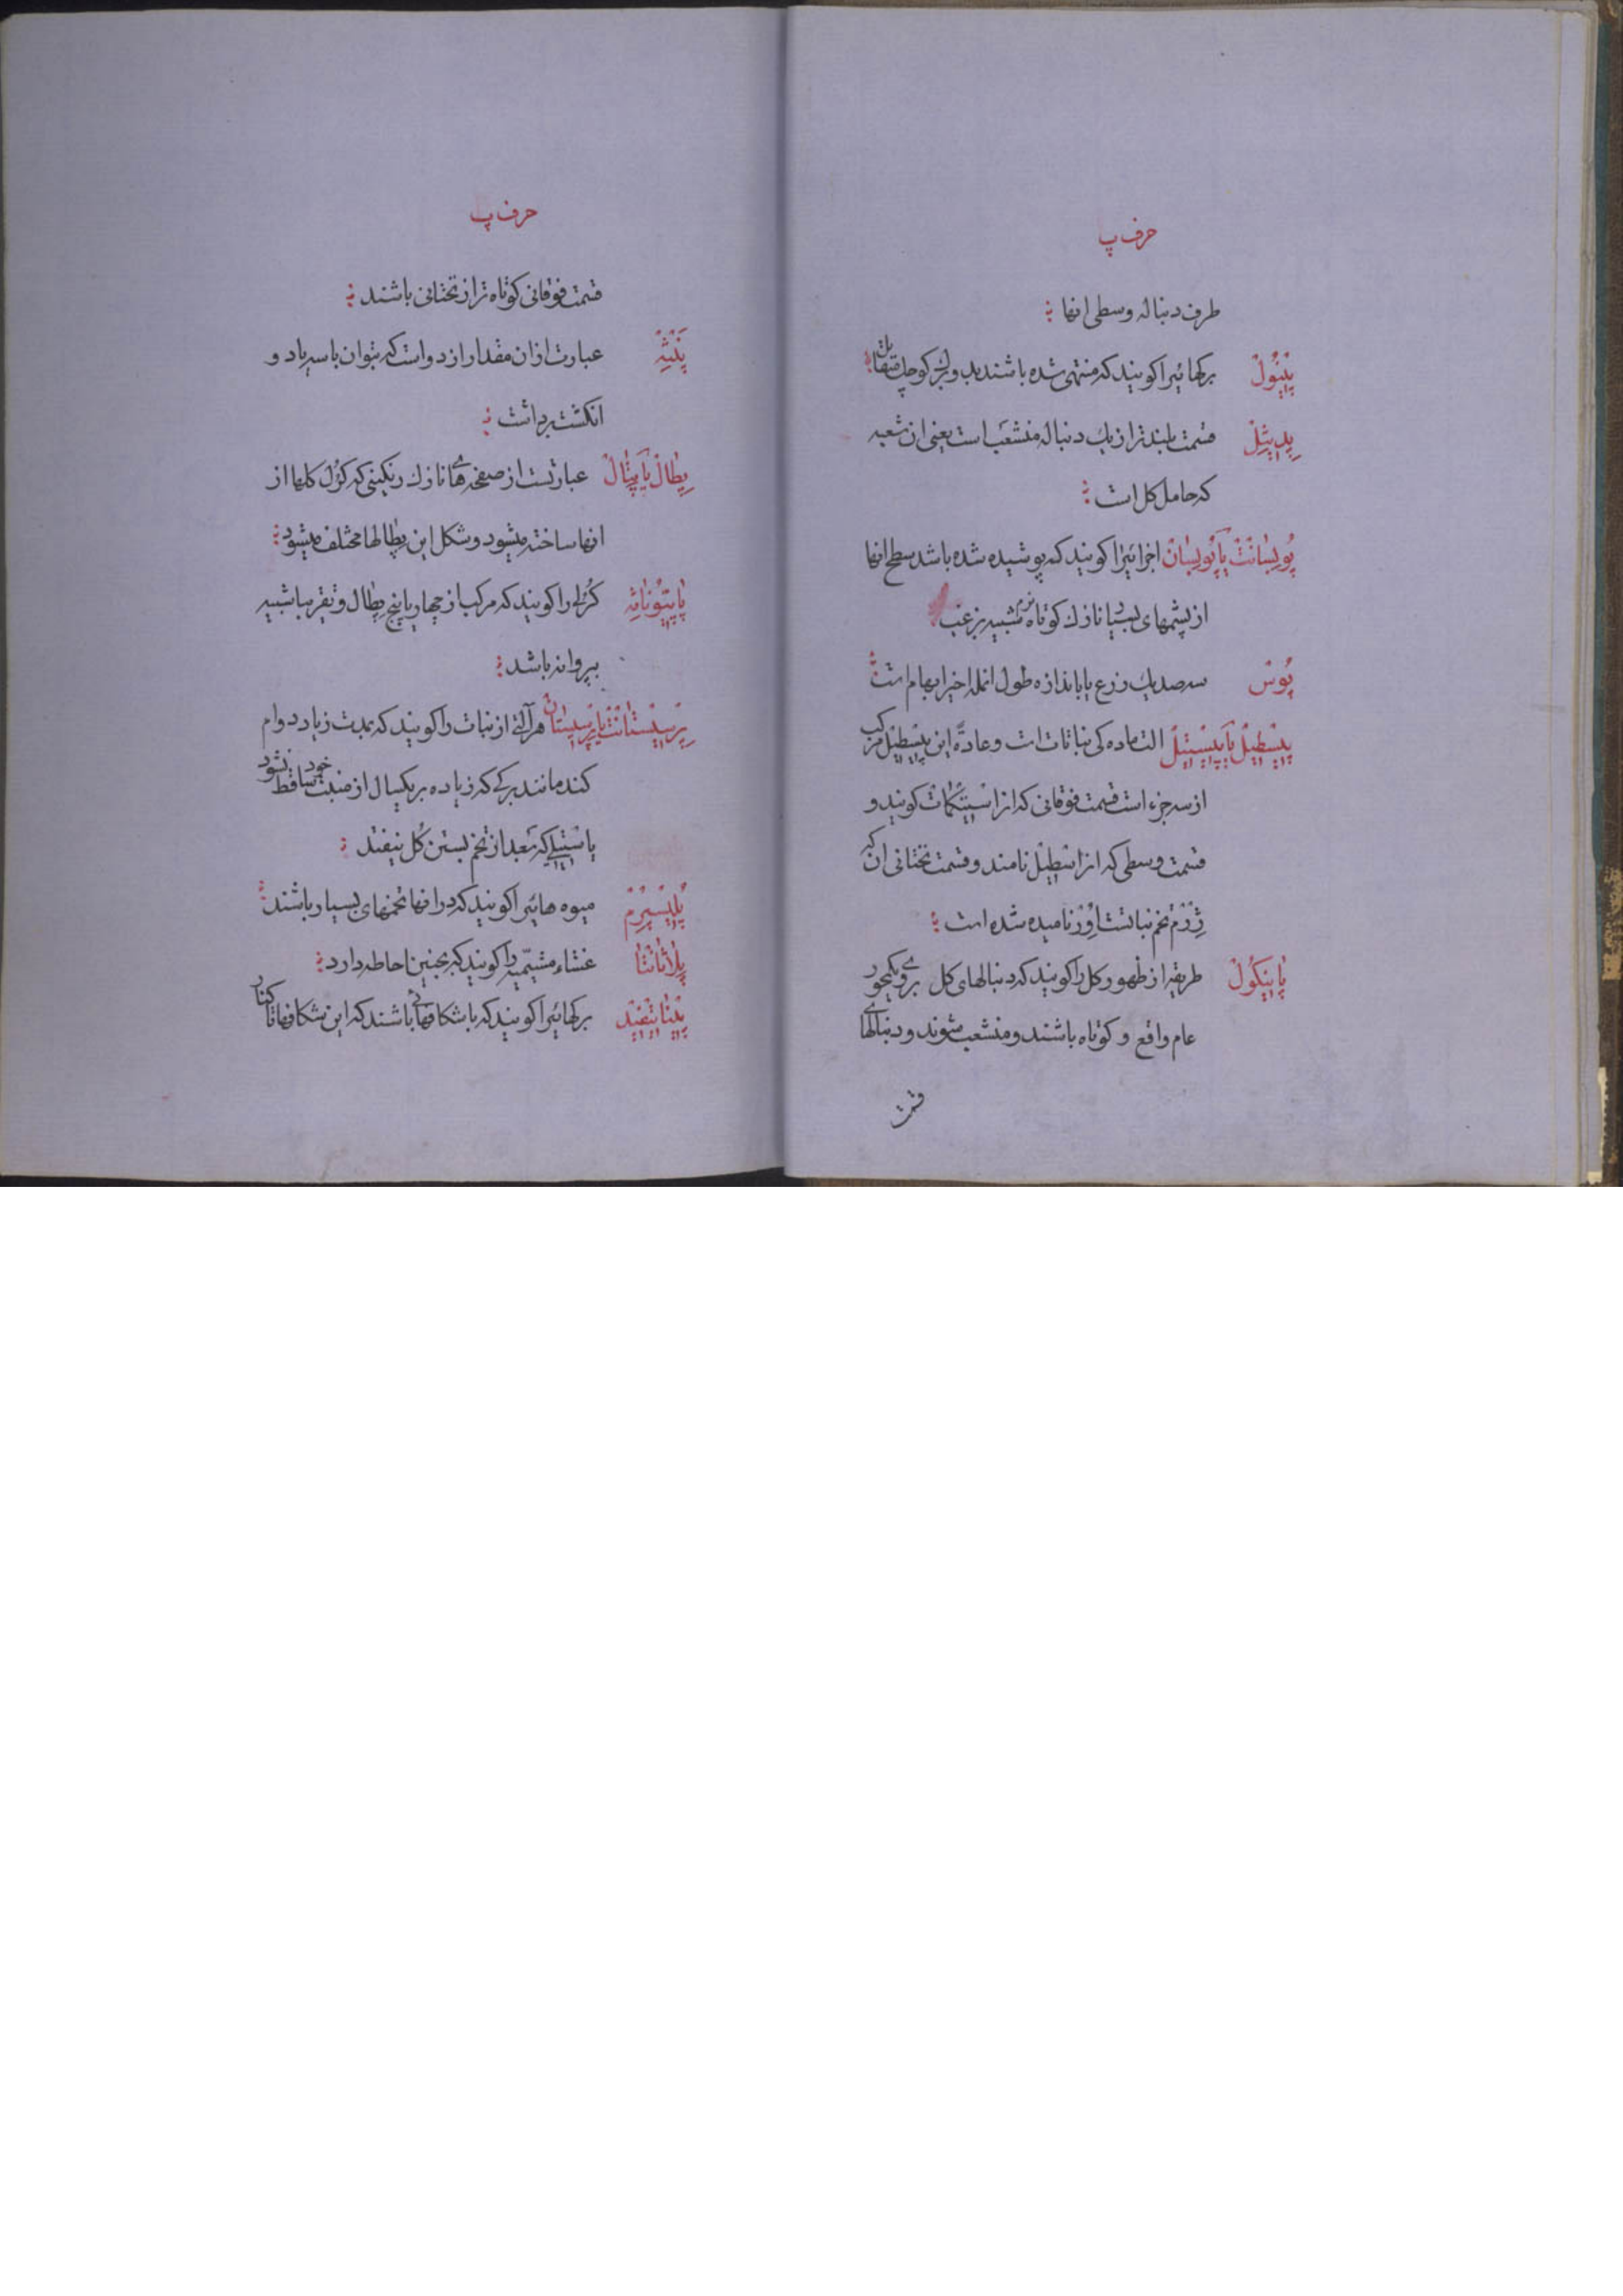 حرف پ
طرف دنباله وسطی انها
پنّول برکهائیرا کویند که منتهی شده باشند بدو برک کوچک متقابل
پدیثل قسمت بلندتر از یک دنباله منشعب است یعنی ان شعبه
که حامل کل است
پوبسانت یا پوبسان اجزائیرا کویند که پوشیده شده باشد سطح انها
از پشمهای بسیار نازک کوتاه نرم شبیه بزغب
پوس سه صدیک زرع یا باندازه طول انمله اخیر ابهام است
پیسطیل یا پیستیل الت ماده کی نباتات است و عادةً این پیسطیل مرکب
از سه جزء است قسمت فوقانی که انرا استیکمات کویند و
قسمت وسطی که انرا اسطیل نامند و قسمت تحتانی ان که
ژرم تخم نباتست اور نامیده شده است
پانیکول طریقه از ظهور کل را کویند که دنبالهای کل بر روی یکمحور
عام واقع و کوتاه باشند و منشعب شوند و دنبالهای
قسمت
حرف پ
قسمت فوقانی کوتاه تر از تحتانی باشند
پنثه عبارت از ان مقدار از دواست که بتوان با سه یا دو
انکشت برداشت
پطال یا پتال عبارتست از صفحه های نازک رنکینی که کرل کلها از
انها ساخته میشود و شکل این پطالها مختلف میشود
پاپیونانه کرلی را کویند که مرکب از چهار یا پنج پطال و تقریبا شبیه
بپروانه باشد
پرسیستانت یا پرسیستان هر آلتی از نبات را کویند که بمدت زیاد دوام
کند مانند برکی که زیاده بر یکسال از منبت خود ساقط نشود
یا ستیلی که بعد از تخم بستن کل نیفتد
پلیسپرم میوه هائیرا کویند که در انها تخمهای بسیار باشند
پلاثانتا غشاء مشیمیه را کویند که بجنین احاطه دارد
پنّاتیفید برکهائیرا کویند که با شکافهائی باشند که این شکافها تا کنار